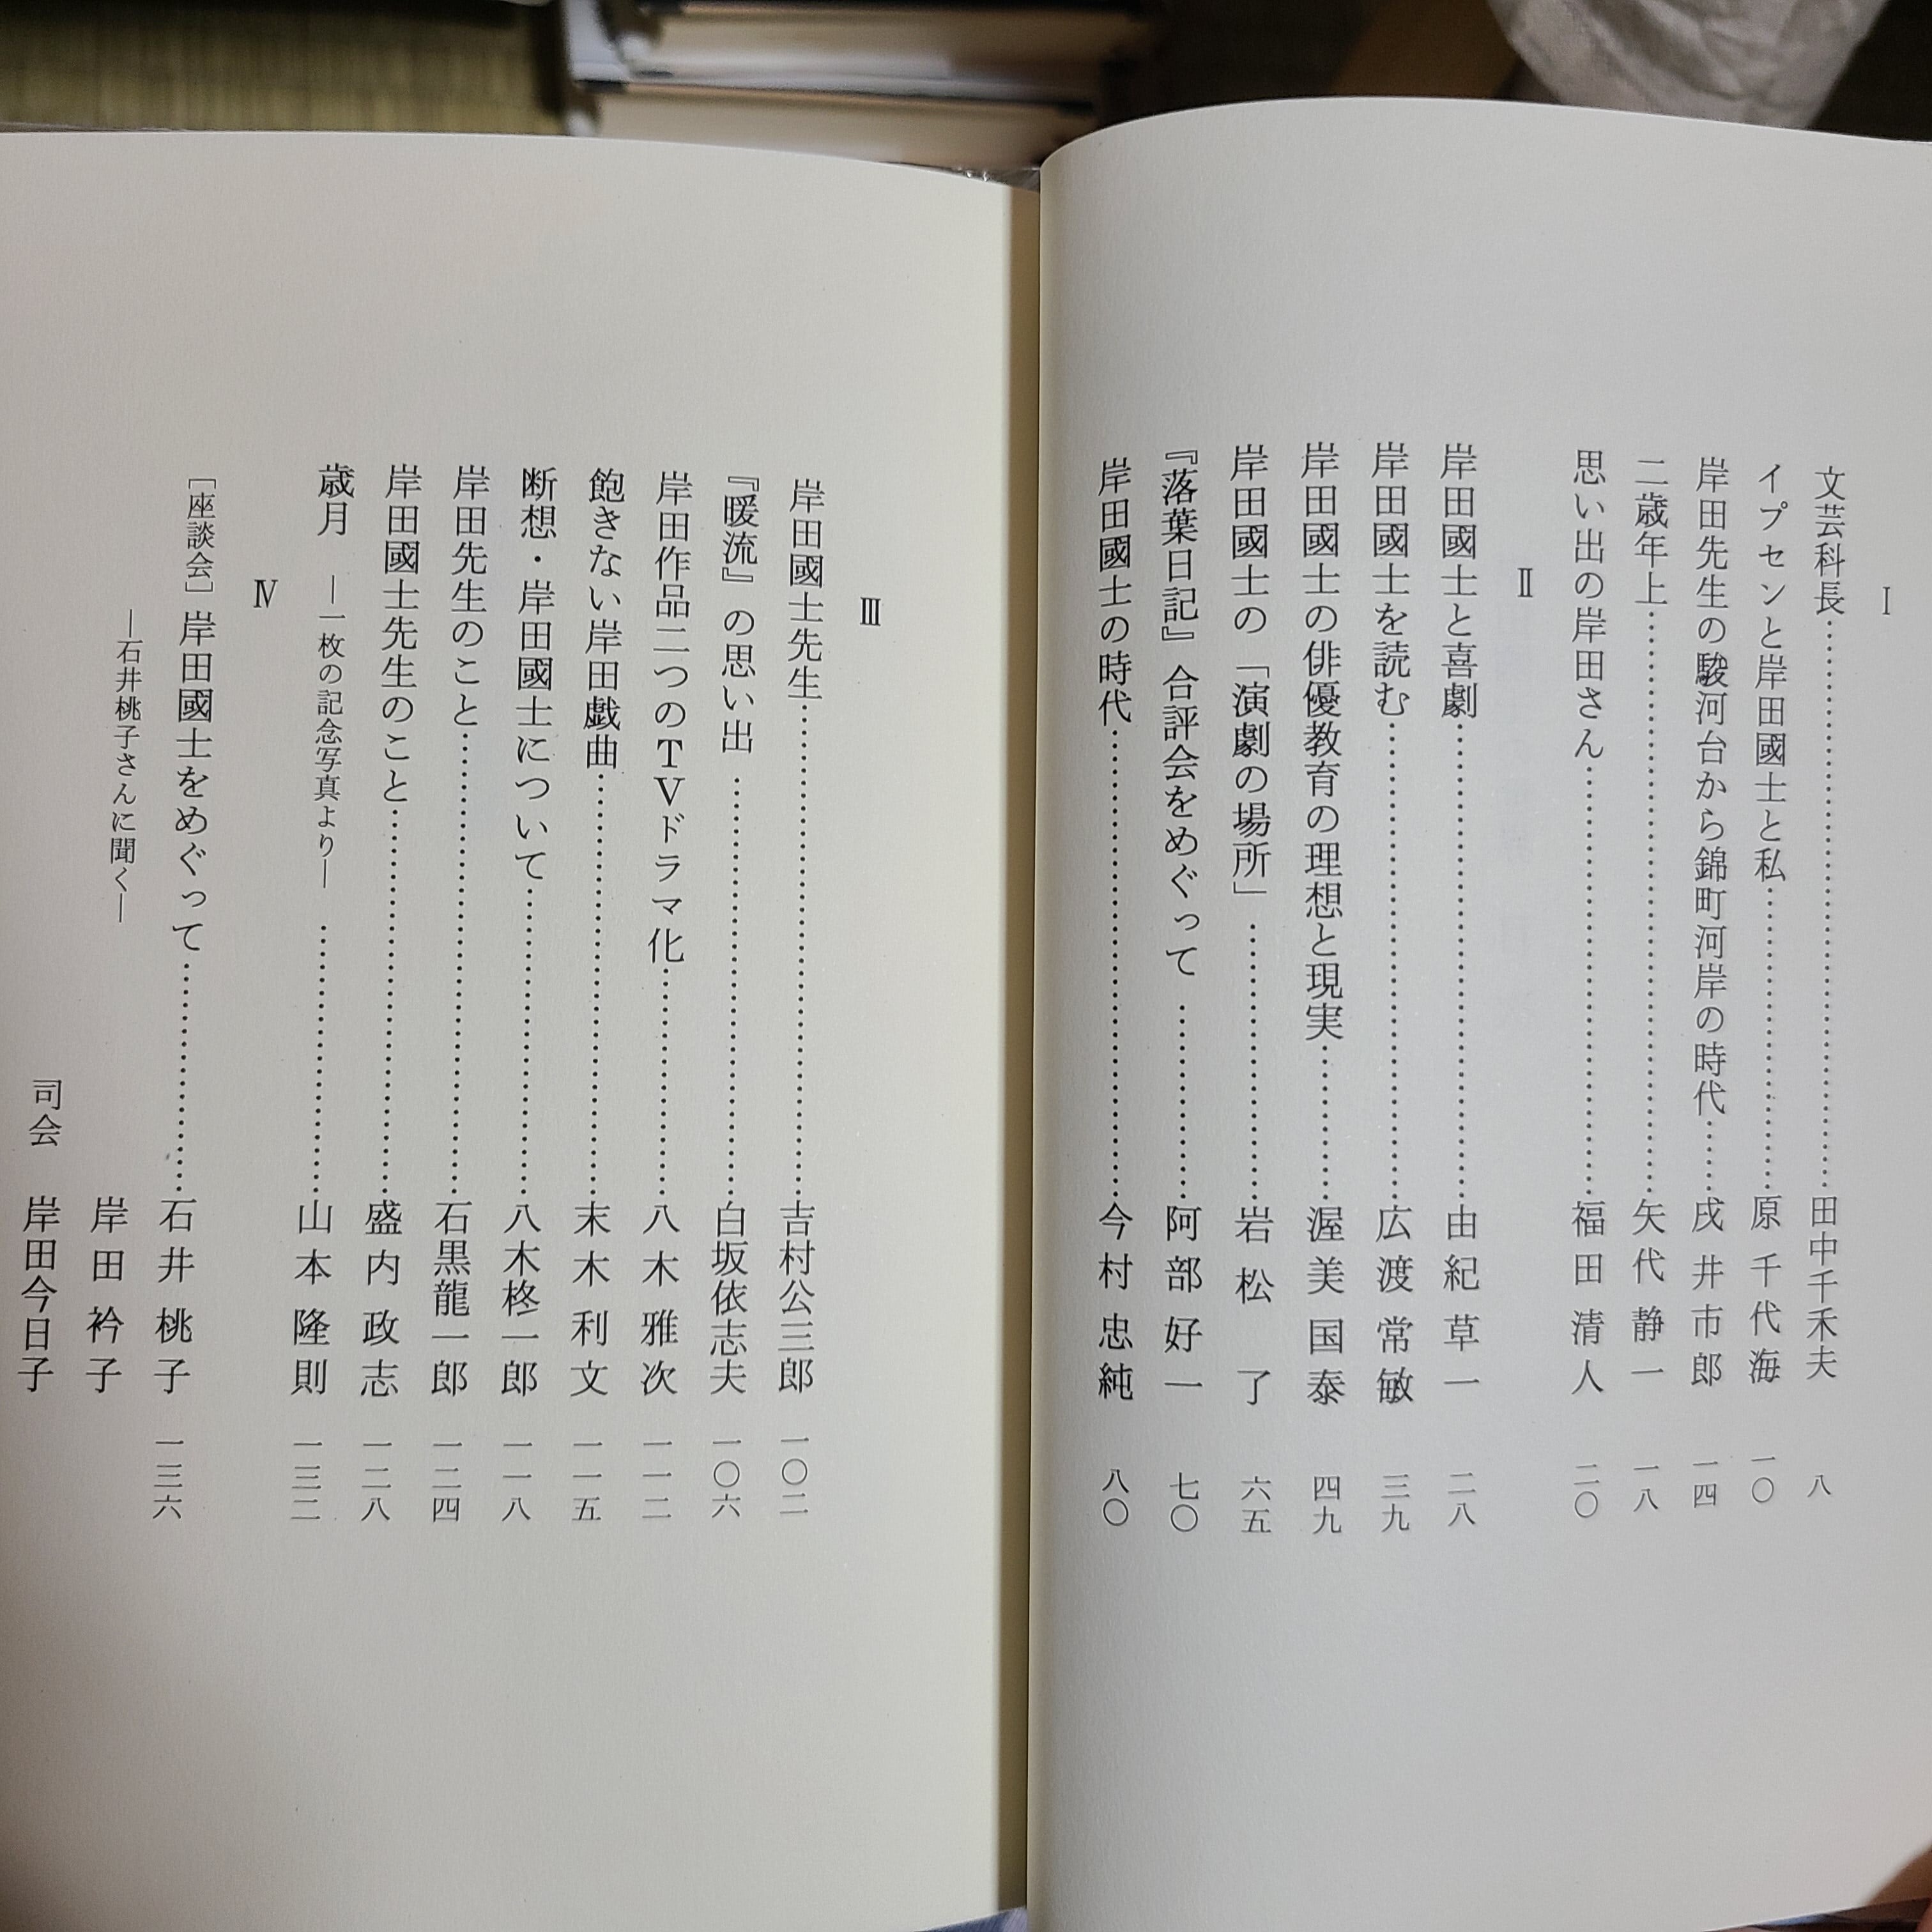 Ⅰ
文芸科長……………………………………田中千禾夫 八
イプセンと岸田國士と私……………………原千代海 一〇
岸田先生の駿河台から錦町河岸の時代……戌井市郎 一四
二歳年上……………………………………矢代静一 一八
思い出の岸田さん…………………………福田清人 二〇
Ⅱ
岸田國士と喜劇……………………………由紀草一 二八
岸田國士を読む……………………………広渡常敏 三九
岸田國士の俳優教育の理想と現実…………渥美国泰 四九
岸田國士の「演劇の場所」…………………岩松了 六五
『落葉日記』合評会をめぐって……………阿部好一 七〇
岸田國士の時代……………………………今村忠純 八〇
Ⅲ
岸田國士先生………………………………吉村公三郎 一〇二
『暖流』の思い出……………………………白坂依志夫 一〇六
岸田作品二つのTVドラマ化………………八木雅次 一一二
飽きない岸田戯曲…………………………末木利文 一一五
断想・岸田國士について……………………八木柊一郎 一一八
岸田先生のこと……………………………石黒龍一郎 一二四
岸田國士先生のこと………………………盛内政志 一二八
歳月 ―一枚の記念写真より― ……………山本隆則 一三二
Ⅳ
［座談会］岸田國士をめぐって……………石井桃子 一三六
―石井桃子さんに聞く―
岸田衿子
司会 岸田今日子